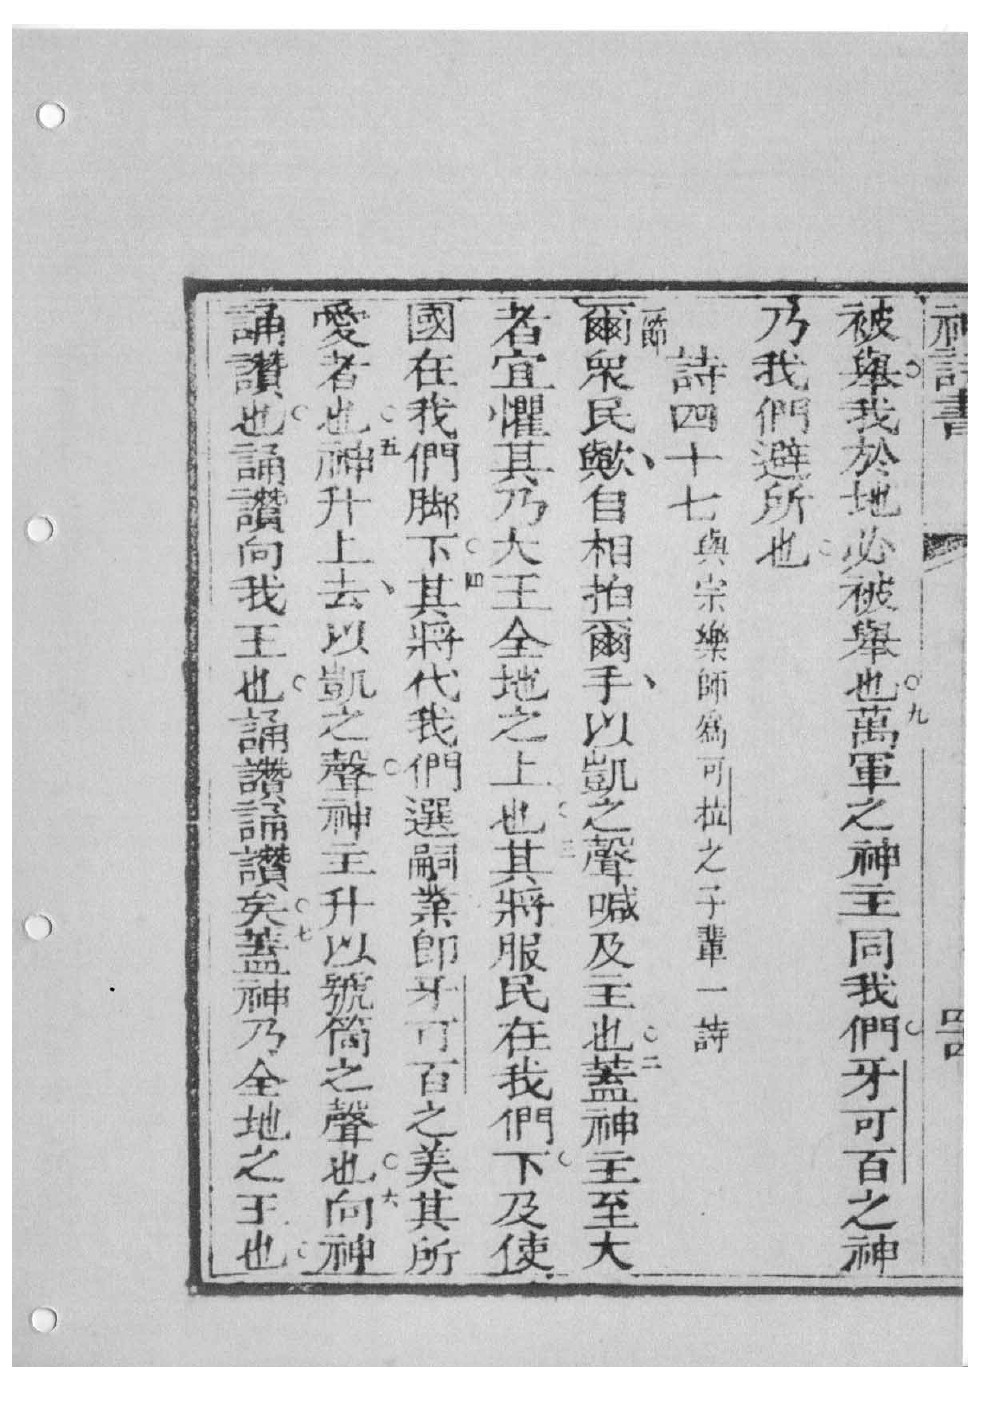 神詩書
被舉○我於地必被舉也○九萬軍之神主同我們○牙可百之神
乃我們避所也○
詩四十七與宗樂師爲可拉之子輩一詩
一節爾衆民歟、自相拍爾手、以凱之聲喊及主也○二蓋神主至大
者宜懼其乃大王全地之上也○三其將服民在我們下○及使
國在我們脚下○四其將代我們選嗣業卽牙可百之美其所
愛者也○五神升上去、以凱之聲○神主升以號筒之聲也○六向神
誦讚也○誦讚向我王也○誦讚誦讚矣○七蓋神乃全地之王也○